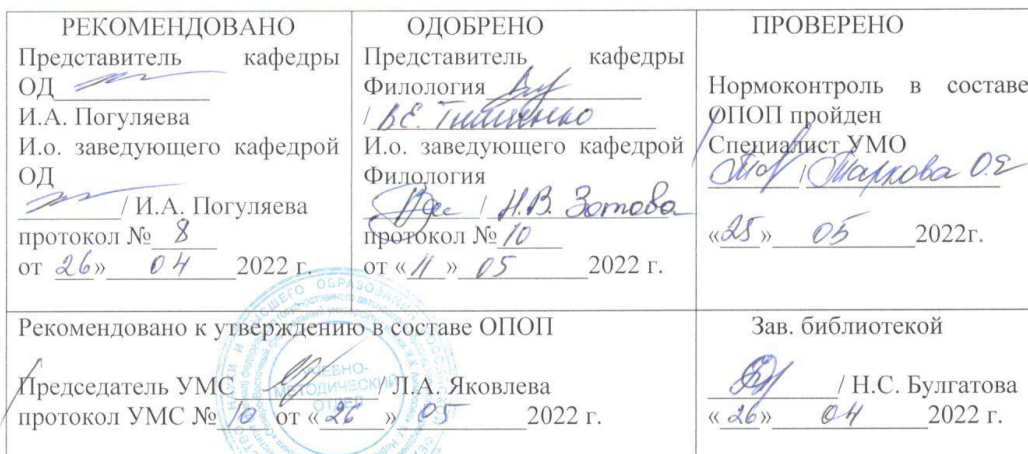 РЕКОМЕНДОВАНО
Представитель кафедры
ОД
И.А. Погуляева
И.о. заведующего кафедрой
ОД
/ И.А. Погуляева
протокол № 8
от 26» 04 2022 г.
ОДОБРЕНО
Представитель кафедры
Филология
/ В.Е. Тимшенко
И.о. заведующего кафедрой
Филология
/ Н.В. Зотова
протокол № 10
от «11» 05 2022 г.
ПРОВЕРЕНО
Нормоконтроль в составе
ОПОП пройден
Специалист УМО
/ О.Е
«25» 05 2022г.
Рекомендовано к утверждению в составе ОПОП
Председатель УМС / Л.А. Яковлева
протокол УМС № 10 от «26» 05 2022 г.
УЧЕБНО-
МЕТОДИЧЕСКИЙ
ОТДЕЛ
Зав. библиотекой
/ Н.С. Булгатова
«26» 04 2022 г.